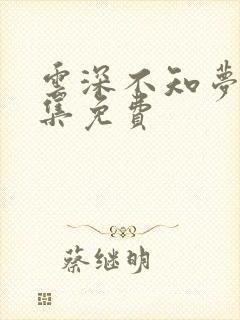 雲深不知夢
集免費
蔡继明